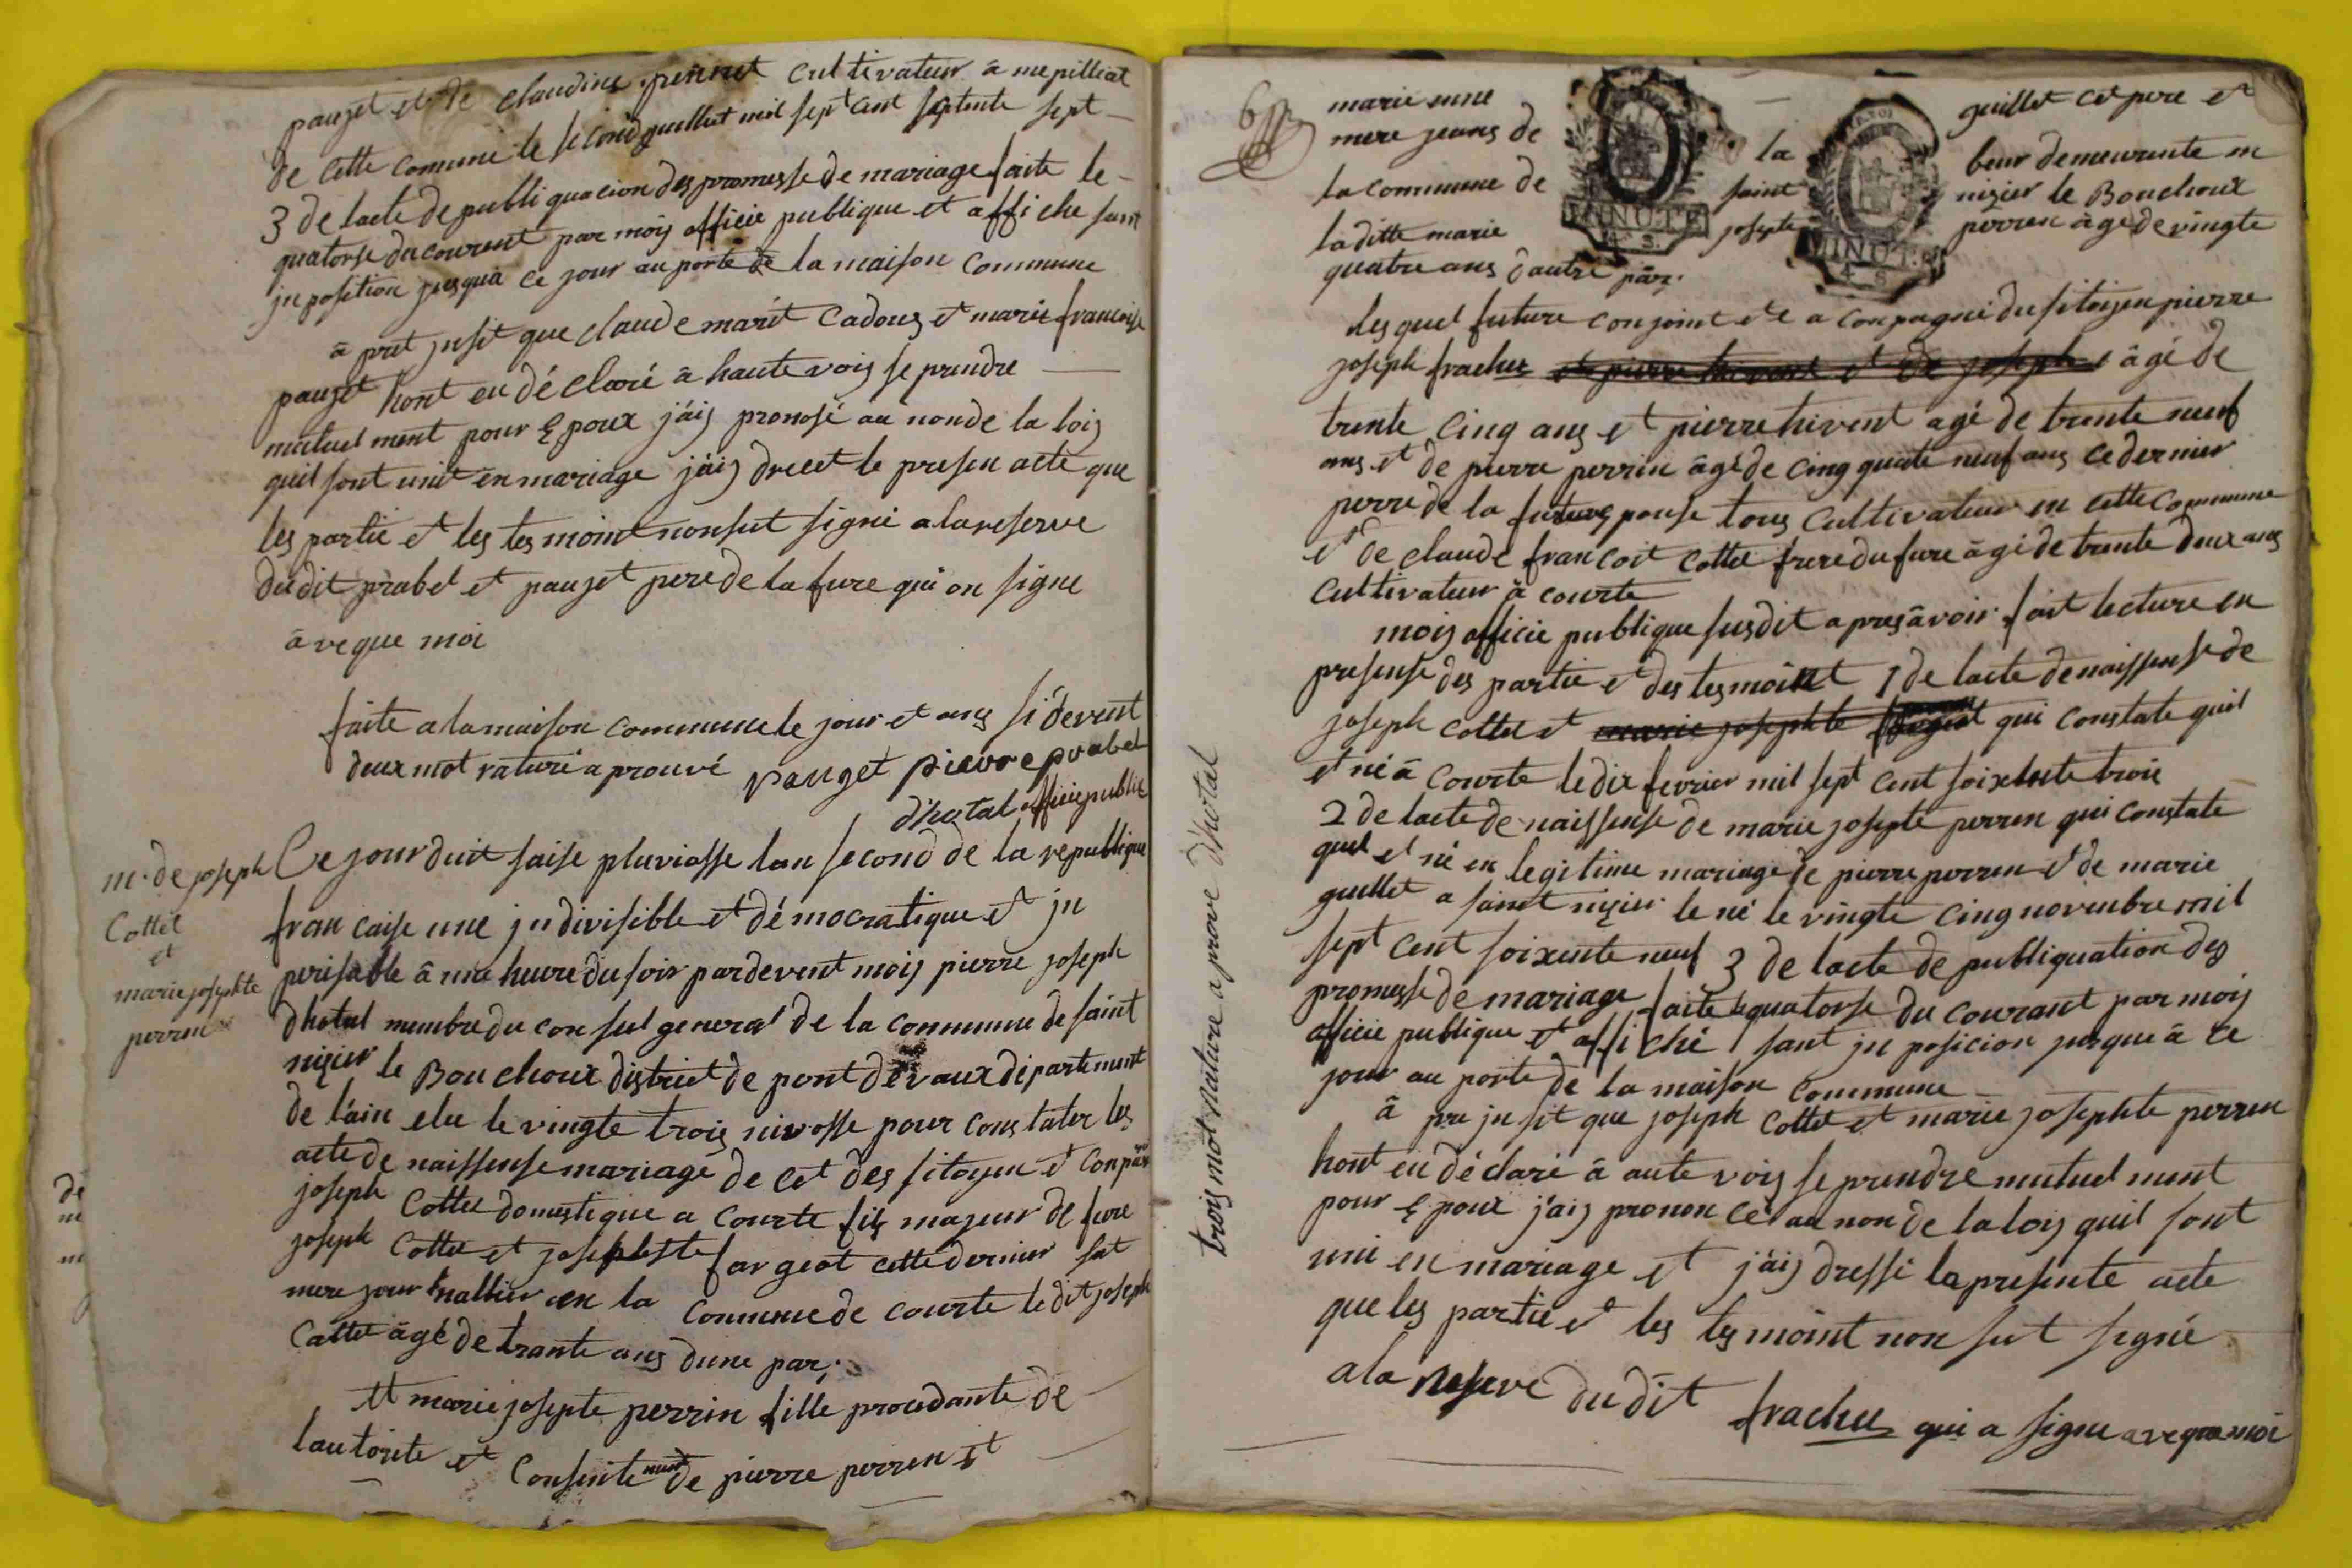 paujet et de claudine perret cultivateur à mepilliat
de cette comune le second guillet mil sept cent septente sept
3 de lacte de publiquacion des promesse de mariage faite le
quatorse du courent par mois officie publique et affiche sant
jnposition jusqua ce jour au porte de la maison commune
à pret jusit que claude marit Cadoug et marie francoise
paujet hont eu déclaré à haute vois se prendre
mutuel ment pour époux jàis pronosé au nonde la lois
quil sont unit en mariage jàis drecet le presen acte que
les partie et les tesmoint nonsut signé a la reserve
dudit prabel et paujet pere de la fure qui on signe
àveque moi
faite a la maison commune le jour et ans si devent
deux mot raturé aprouvé pauget pierre prabel
dhotal officie publie
m. de joseph
Cottel
et
marie josephte
perrin
Ce jour duit saise pluviosse lan second de la republique
francaise une jndivisible et démocratique et jn
perisable à une heure du soir pardevent mois pierre joseph
dhotal menbre du consul general de la commune de saint
nisier le Bouchoux district de pont de vaux département
de l'ain elu le vingte trois nivosse pour constater les
acte de naissense mariage de cet des sitoyen et conparu
joseph Cottel domestique a courte fils majeur de fure
joseph Cottel et josephte fargeot cette dernier sat
mere jour nallier en la commune de courte ledit joseph
Cottel àgé de trante ans dune par;
Et marie josepte perrin fille procedante de
lautorite et consentement de pierre perren et
6
marie enne guillet cet pere et
mere jeans de la beur demeurante en
la commune de saint nisier le Bouchoux
laditte marie josepte perren àgé de vingte
quatre ans dautre par.
MINUTE
4 S.
MINUTE
4 S
les quel future conjoint ete a conpagné du sitoijen pierre
joseph frachet et pierre hivent et de joseph àgé de
trente cinq ans et pierre hivent agé de trente neuf
ans et de pierre perrin àgé de cinqquate neuf ans ce dernier
perre de la future pouse tous cultivateur en cette commune
et de claude francoit Cottel frere du fure àgé de trente deux ans
cultivateur à courte
mois officie publique susdit apres àvoir fait lecture en
presense des partie et des tesmoint 1 de lacte de naissense de
joseph Cottel et marie josephte fargeot qui constate quil
et né à courte le dix fevrier mil sept cent soixente trois
2 de lacte de naissense de marie josepte perren qui constate
quel et né en legitime mariage de pierre perren et de marie
guillet a saint nisier le né le vingte cinq novenbre mil
sept cent soixente neuf 3 de lacte de publiquation des
promesse de mariage faite le quatorse du courant par mois
officie publique et affiché sant jnposicion jusque à ce
jour au porte de la maison commune
à pre jusit que joseph Cottel et marie josephte perren
hont eu déclaré à aute vois se prendre mutuel ment
pour époux jàis prononcé au non de la lois quil sont
uni en mariage et jàis dressé la presente acte
que les partie et les tesmoint non sut signé
a la reserve du dit frachet qui a signe aveque moi
trois mot rature aprove dhotal